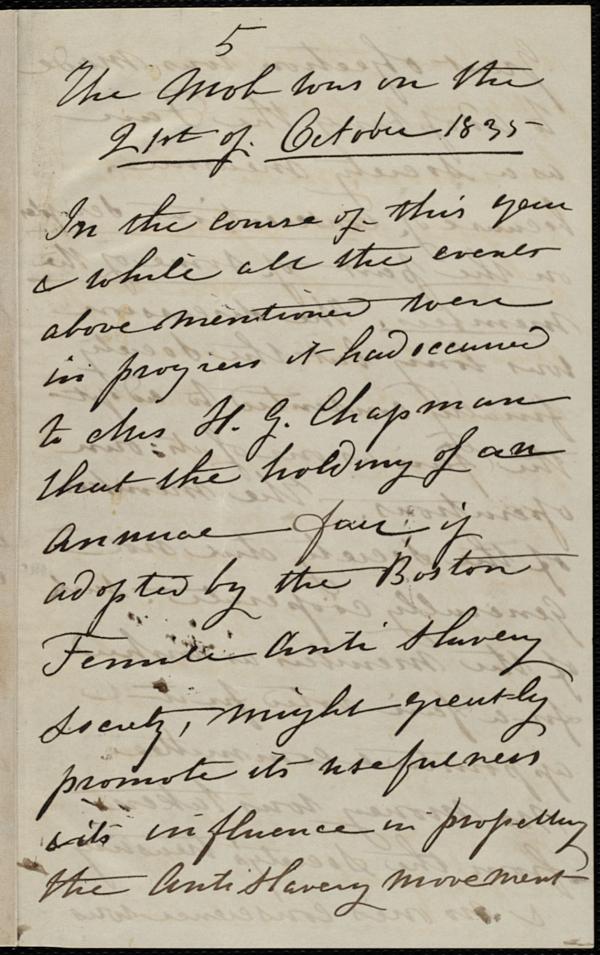 5
The Mob was on the
21st of October 1835
In the course of this year
& while all the events
above mentioned were
in progress it had occurred
to Mrs H. G. Chapman
that the holding of an
annual fair if
adopted by the Boston
Female Anti Slavery
Society, might greatly
promote its usefulness
& its influence in propelling
the Anti Slavery movement